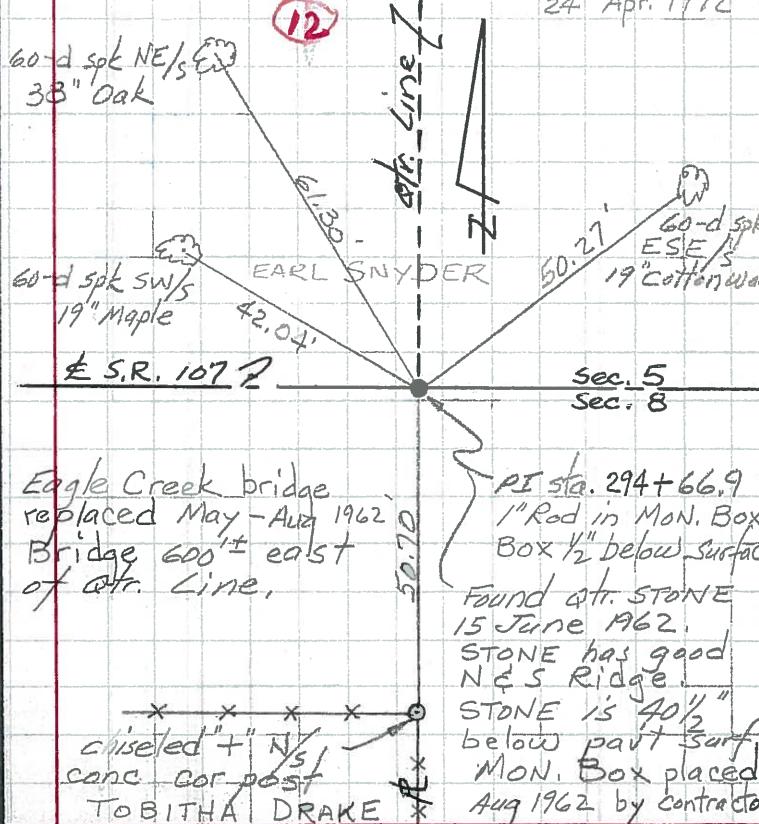 12
24 Apr. 1972
60-d spk NE/s
38" Oak
61.30'
Qtr. Line
N
60-d spk
ESE/s
19" Cottonwoo
50.27'
60-d spk SW/s
19" Maple
42.04'
EARL SNYDER
℄ S.R. 107
sec. 5
sec. 8
Eagle Creek bridge
replaced May-Aug 1962
Bridge 600'± east
of Qtr. Line.
50.70'
PI sta. 294+66.9
1" Rod in MON. Box
Box ½" below surfac
Found Qtr. STONE
15 June 1962.
STONE has good
N & S Ridge.
STONE is 40½"
below pav't surf
MON. Box placed
Aug 1962 by contracto
chiseled "+" N/s
conc cor post
TOBITHA DRAKE
℄